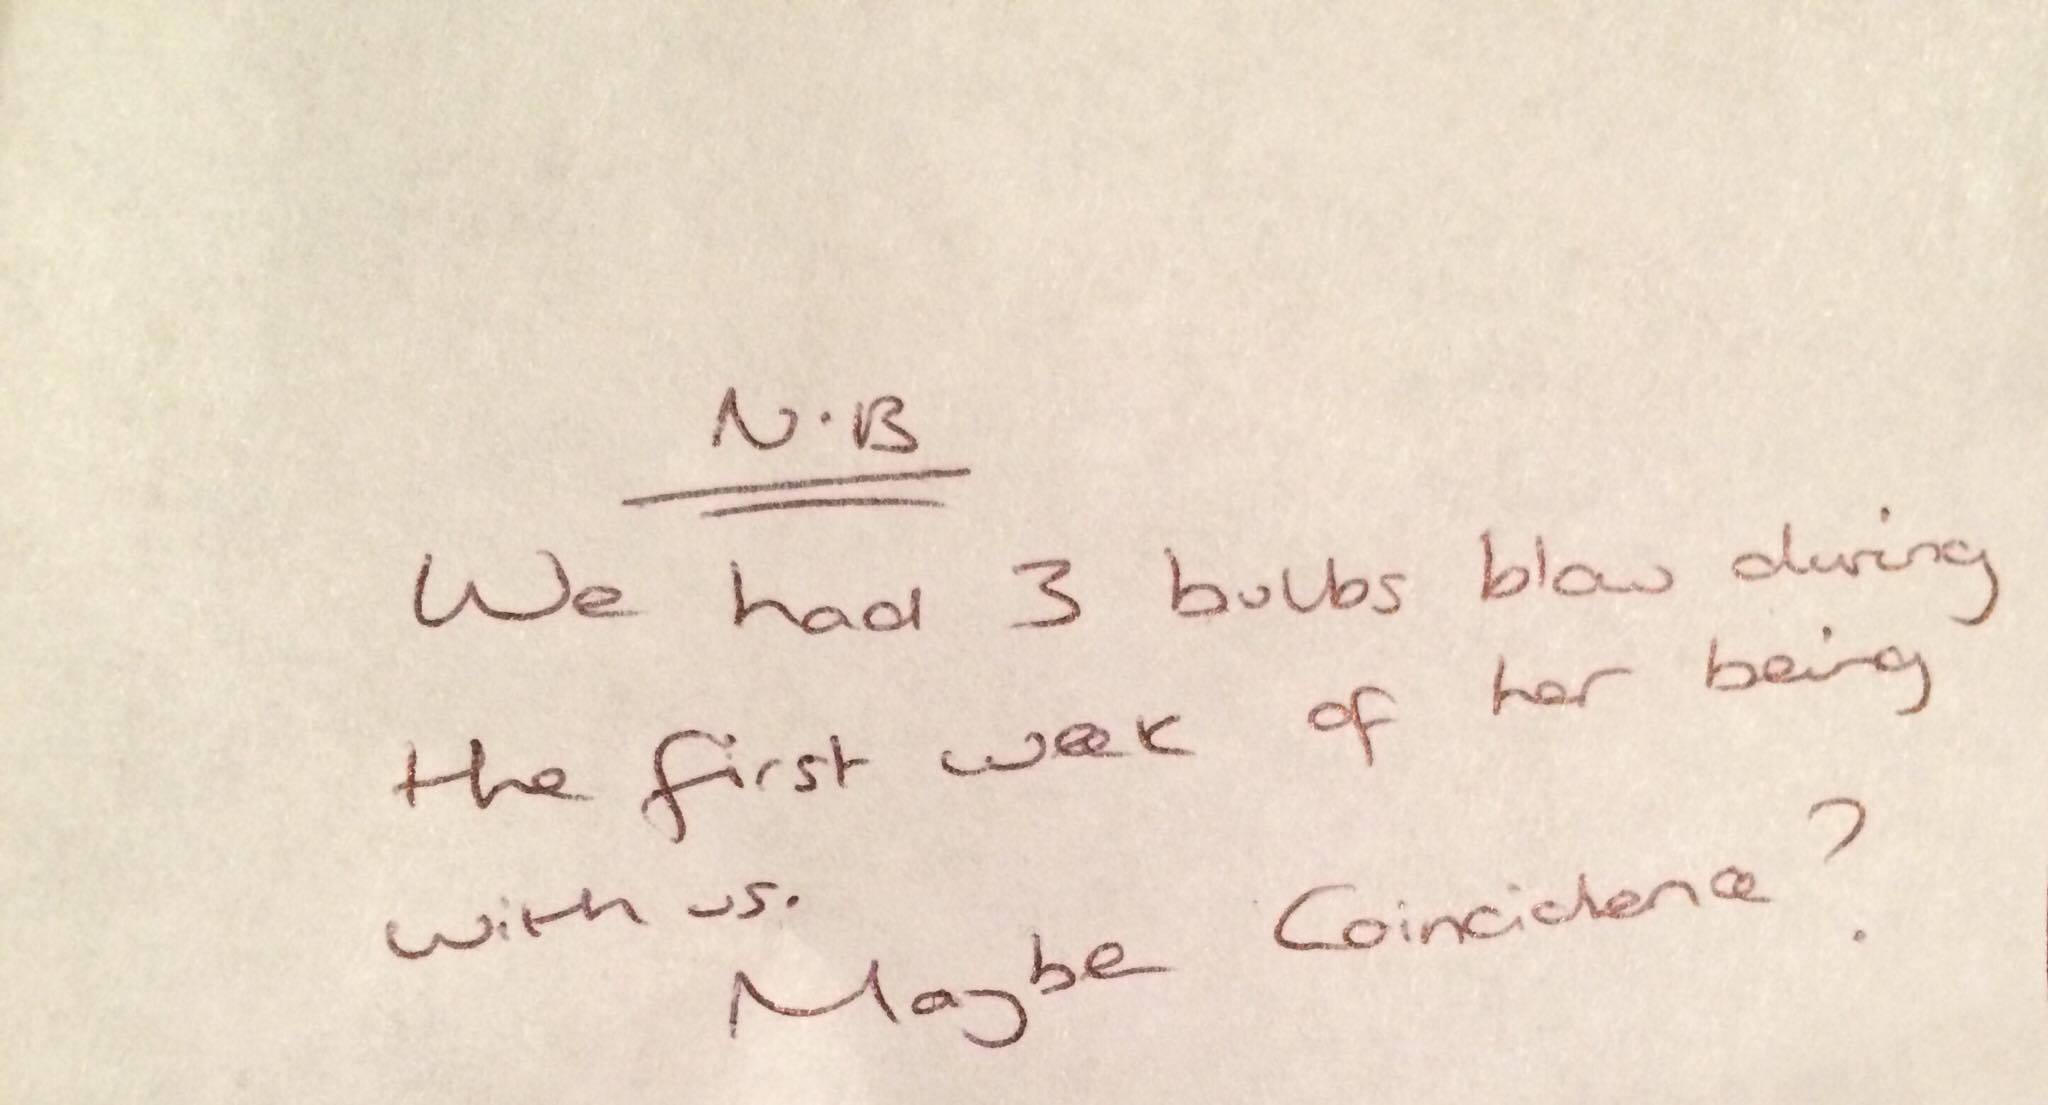 N.B
We had 3 bulbs blow during
the first week of her being
with us.
Maybe Coincidence?